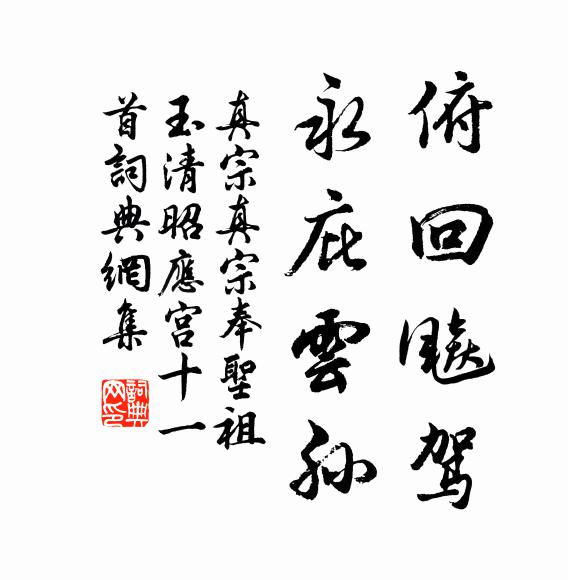 俯回飈駕
永庇雲孫
真宗真宗奉聖祖
玉清昭應宮十一
首詞典網集
詞典网印